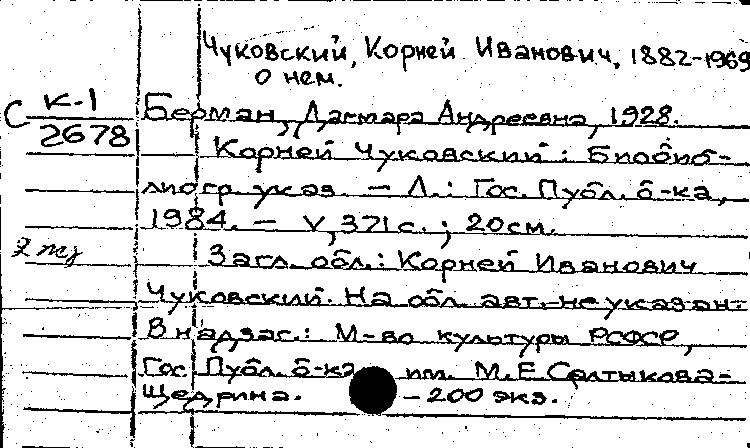 Чуковский, Корней Иванович, 1882-1969
о нем.
С К-1
2678
Берман, Дагмара Андреевна, 1928.
Корней Чуковский: Биобиб-
лиогр. указ. — Л.: Гос. Публ. б-ка,
1984. — V, 371 с.; 20 см.
2 экз
Загл. обл.: Корней Иванович
Чуковский. На обл. авт. не указан.
В надзаг.: М-во культуры РСФСР,
Гос. Публ. б-ка им. М.Е. Салтыкова-
Щедрина. — 200 экз.